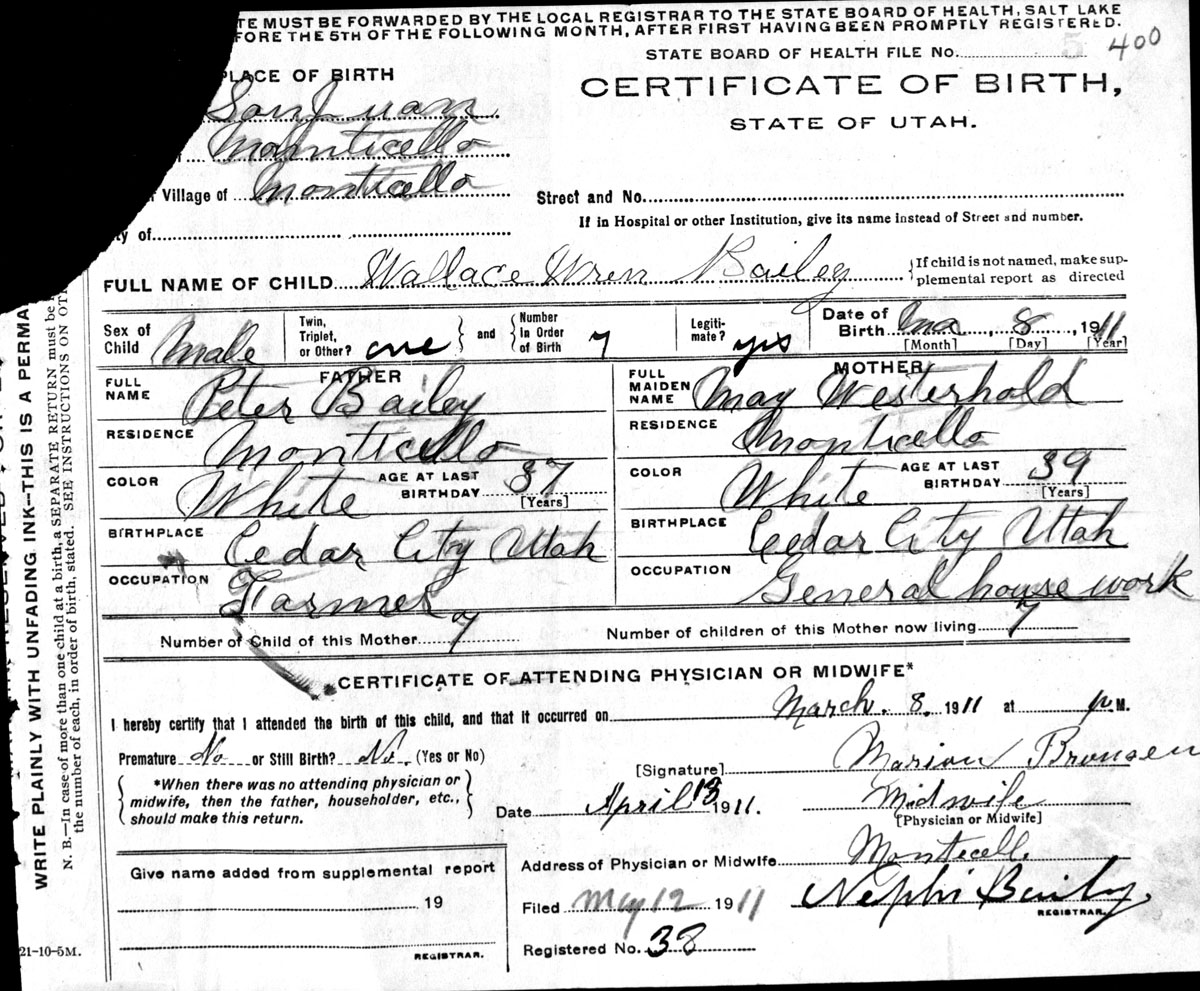 TE MUST BE FORWARDED BY THE LOCAL REGISTRAR TO THE STATE BOARD OF HEALTH, SALT LAKE
FORE THE 5TH OF THE FOLLOWING MONTH, AFTER FIRST HAVING BEEN PROMPTLY REGISTERED.
STATE BOARD OF HEALTH FILE NO. 5 400
PLACE OF BIRTH
CERTIFICATE OF BIRTH,
STATE OF UTAH.
San Juan
Monticello
Village of Monticello
Street and No.
If in Hospital or other Institution, give its name instead of Street and number.
ty of
FULL NAME OF CHILD Wallace Wren Bailey {If child is not named, make sup-
plemental report as directed
Sex of Child Male Twin, Triplet, or Other? one } and { Number In Order of Birth 7 Legiti-mate? yes Date of Birth Mar, 8, 1911
[Month] [Day] [Year]
FATHER MOTHER
FULL NAME Peter Bailey FULL MAIDEN NAME May Westerhold
RESIDENCE Monticello RESIDENCE Monticello
COLOR White AGE AT LAST BIRTHDAY 37 [Years] COLOR White AGE AT LAST BIRTHDAY 39 [Years]
BIRTHPLACE Cedar City Utah BIRTHPLACE Cedar City Utah
OCCUPATION Farmer OCCUPATION General house work
Number of Child of this Mother 7 Number of children of this Mother now living 7
CERTIFICATE OF ATTENDING PHYSICIAN OR MIDWIFE*
I hereby certify that I attended the birth of this child, and that it occurred on March. 8. 1911 at p. M.
Premature No or Still Birth? No. (Yes or No)
[Signature] Marion Bronsen
{ *When there was no attending physician or
midwife, then the father, householder, etc.,
should make this return. }
Date April 13 1911. Midwife
[Physician or Midwife]
Address of Physician or Midwife Monticell.
Give name added from supplemental report
19
REGISTRAR.
Filed May 12 1911 Nephi Baily,
REGISTRAR.
Registered No. 38
21-10-5M.
WRITE PLAINLY WITH UNFADING INK--THIS IS A PERMA
N. B.—In case of more than one child at a birth, a SEPARATE RETURN must be
the number of each, in order of birth, stated. SEE INSTRUCTIONS ON OTH